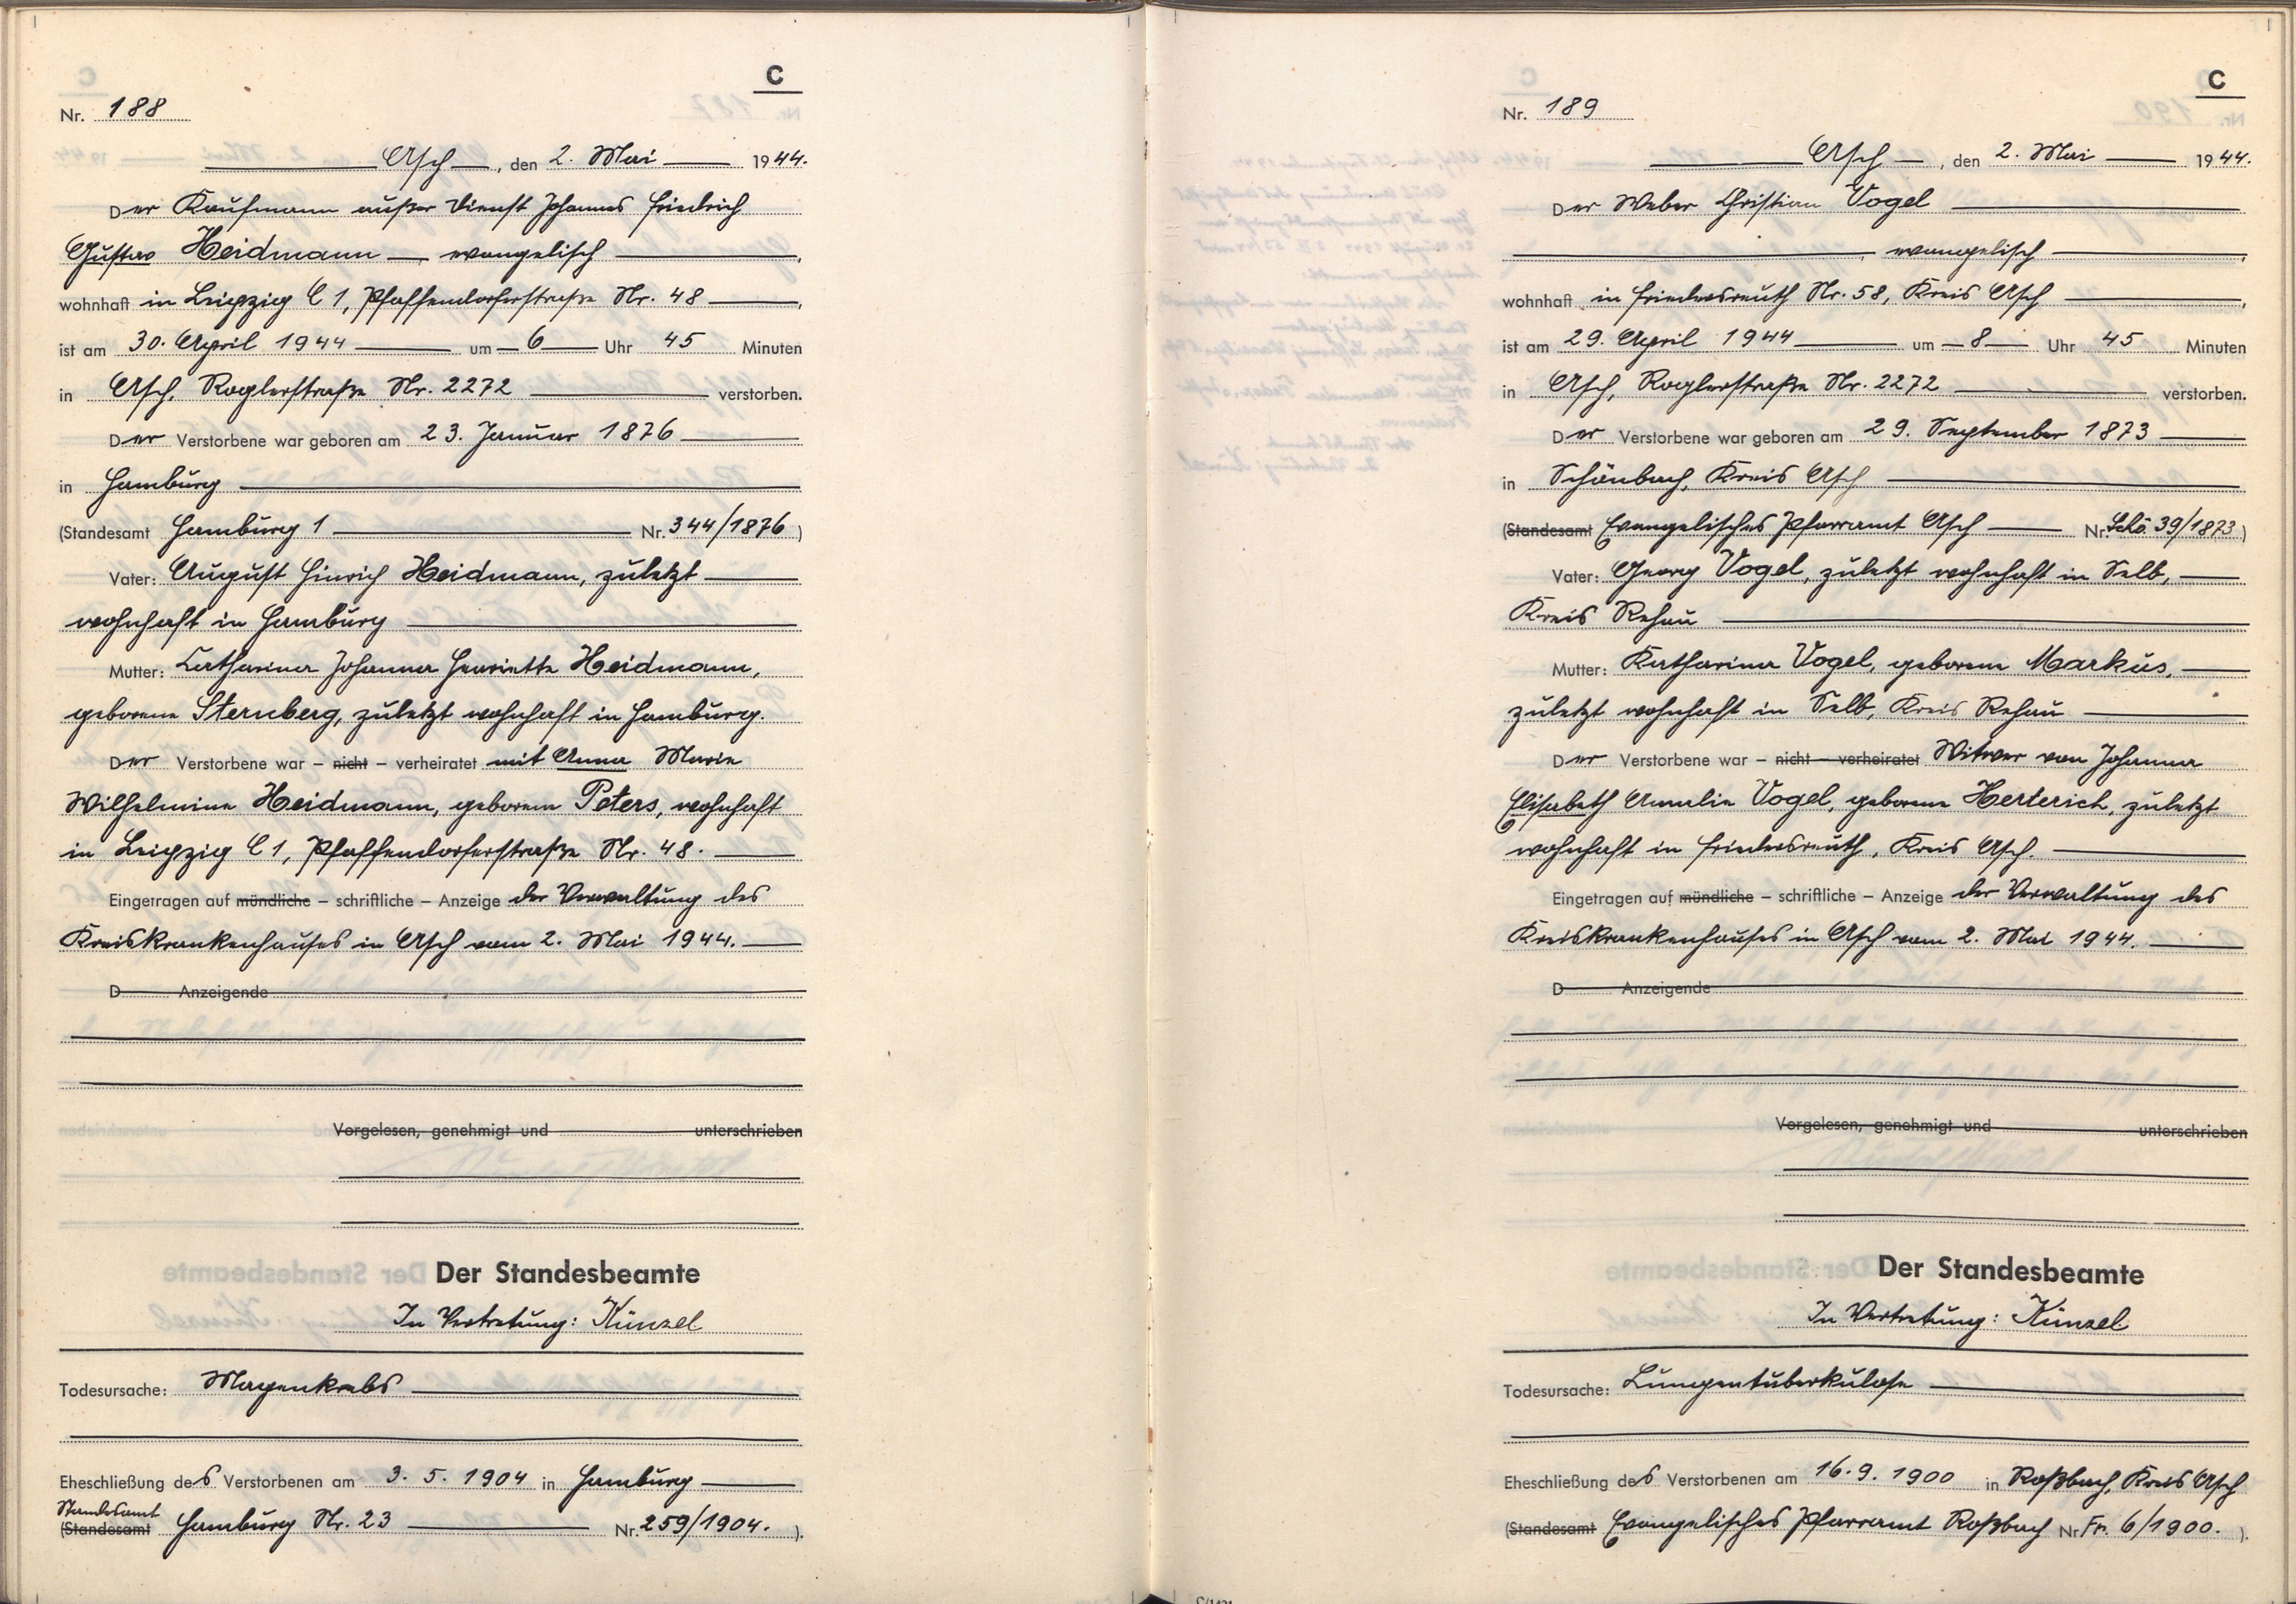 C
Nr. 188
Asch, den 2. Mai 1944.
Der Kaufmann außer Dienst Johannes Friedrich
Gustav Heidmann, evangelisch,
wohnhaft in Leipzig C 1, Pfaffendorferstraße Nr. 48,
ist am 30. April 1944 um 6 Uhr 45 Minuten
in Asch, Roglerstraße Nr. 2272 verstorben.
Der Verstorbene war geboren am 23. Januar 1876
in Hamburg
(Standesamt Hamburg 1 Nr. 344/1876)
Vater: August Hinrich Heidmann, zuletzt
wohnhaft in Hamburg
Mutter: Catharina Johanna Henriette Heidmann,
geborene Sternberg, zuletzt wohnhaft in Hamburg.
Der Verstorbene war – nicht – verheiratet mit Anna Marie
Wilhelmine Heidmann, geborene Peters, wohnhaft
in Leipzig C 1, Pfaffendorferstraße Nr. 48.
Eingetragen auf mündliche – schriftliche – Anzeige der Verwaltung des
Kreiskrankenhauses in Asch vom 2. Mai 1944.
D Anzeigende
Vorgelesen, genehmigt und unterschrieben
Der Standesbeamte
In Vertretung: Künzel
Todesursache: Magenkrebs
Eheschließung des Verstorbenen am 3. 5. 1904 in Hamburg
Standesamt
(Standesamt Hamburg Nr. 23 Nr. 259/1904. ).
C
Nr. 189
Asch, den 2. Mai 1944.
Der Weber Christian Vogel
, evangelisch,
wohnhaft in Friedersreuth Nr. 58, Kreis Asch,
ist am 29. April 1944 um 8 Uhr 45 Minuten
in Asch, Roglerstraße Nr. 2272 verstorben.
Der Verstorbene war geboren am 29. September 1873
in Schönbach, Kreis Asch
(Standesamt Evangelisches Pfarramt Asch Nr. Schö. 39/1873)
Vater: Georg Vogel, zuletzt wohnhaft in Selb,
Kreis Rehau
Mutter: Katharina Vogel, geborene Markus,
zuletzt wohnhaft in Selb, Kreis Rehau
Der Verstorbene war – nicht – verheiratet Witwer von Johanna
Elisabeth Amalie Vogel, geborene Herterich, zuletzt
wohnhaft in Friedersreuth, Kreis Asch.
Eingetragen auf mündliche – schriftliche – Anzeige der Verwaltung des
Kreiskrankenhauses in Asch vom 2. Mai 1944.
D Anzeigende
Vorgelesen, genehmigt und unterschrieben
Der Standesbeamte
In Vertretung: Künzel
Todesursache: Lungentuberkulose
Eheschließung des Verstorbenen am 16. 9. 1900 in Roßbach, Kreis Asch
(Standesamt Evangelisches Pfarramt Roßbach Nr Fr. 6/1900. ).